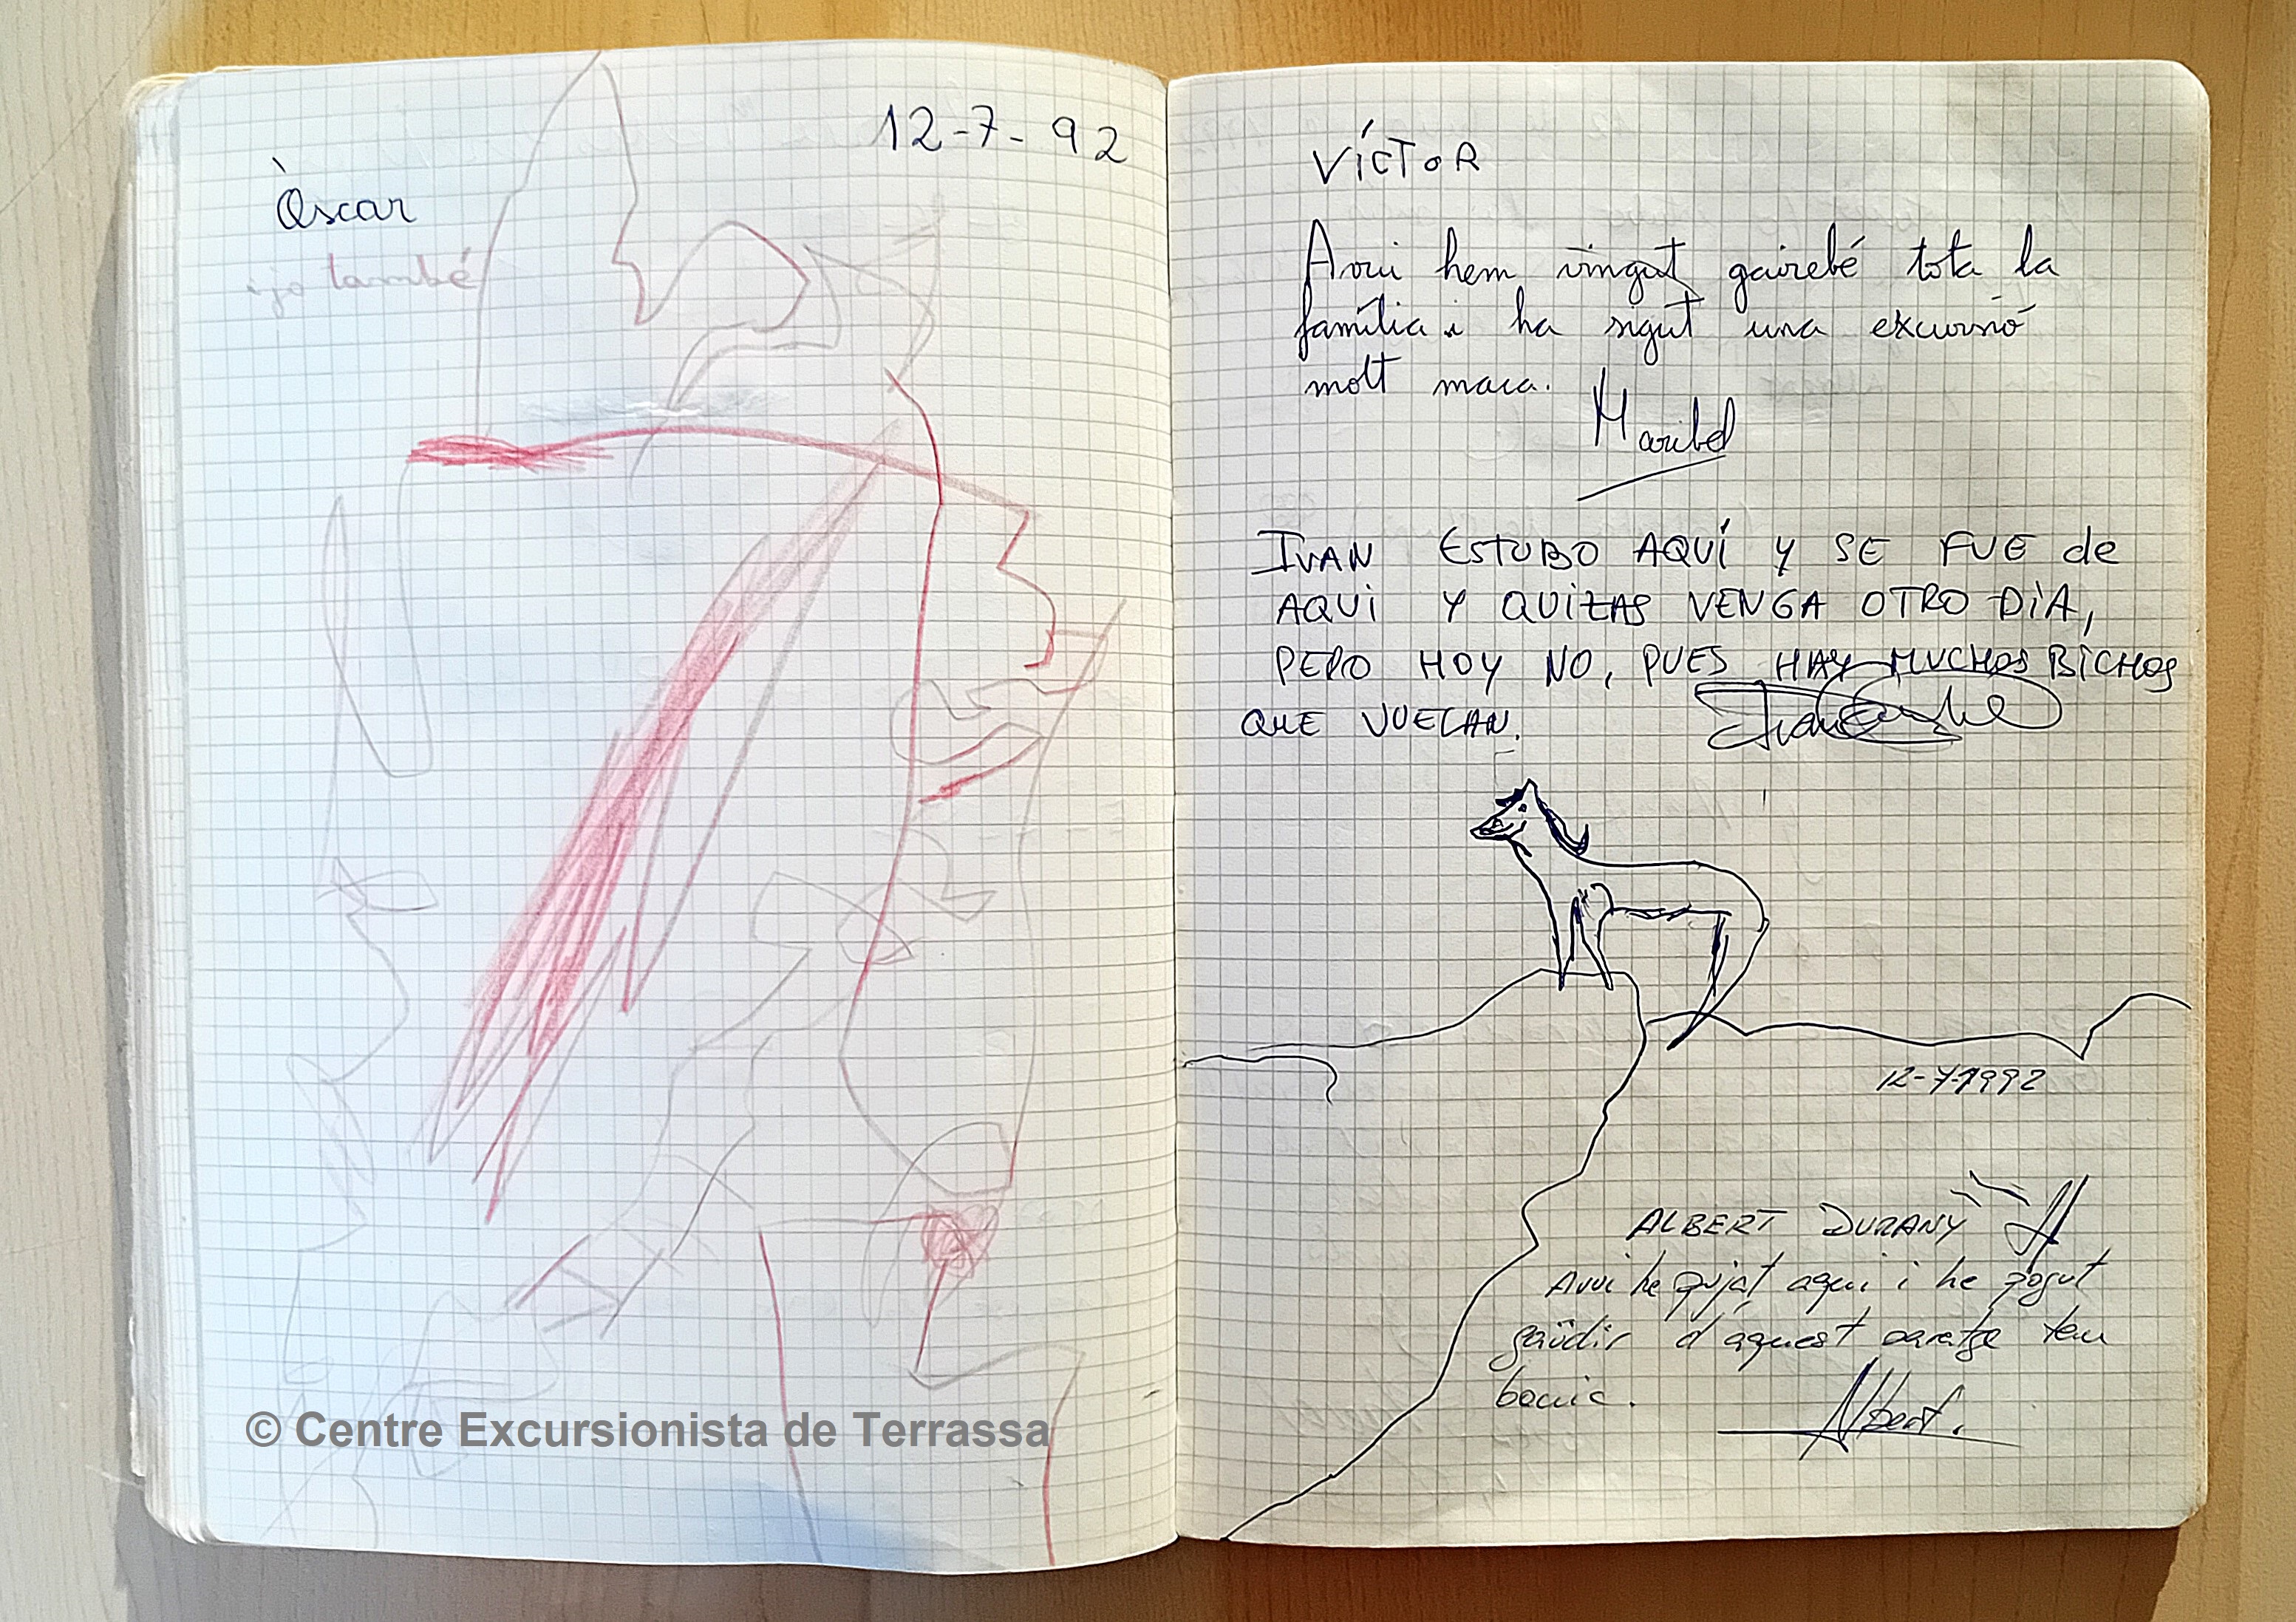 12-7-92
Òscar
i jo també
© Centre Excursionista de Terrassa
VÍCTOR
Avui hem vingut gairebé tota la
família i ha sigut una excursió
molt maca.
Maribel
IVAN ESTUBO AQUÍ Y SE FUE de
AQUI Y QUIZAS VENGA OTRO DIA,
PERO HOY NO, PUES HAY MUCHOS BICHOS
QUE VUELAN.
Ivan
12-7-1992
ALBERT DURANY
Avui he pujat aquí i he pogut
gaüdir d'aquest paratge tan
bonic.
Albert.